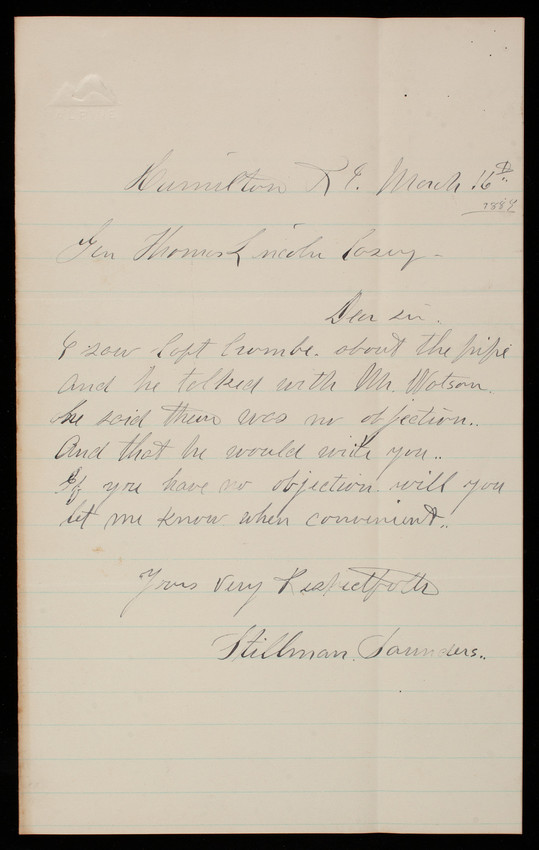 Hamilton R I. March 16th
1889
Gen Thomas Lincoln Casey -
Dear Sir.
I saw Capt Crombe. about the pipe
And he talked with Mr. Watson.
he said there was no objection..
And that he would write you..
If you have no objection will you
let me know when convenient..
Yours Very Respectfully
Stillman Saunders..